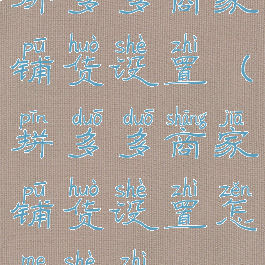 拼多多商家
pū huò shè zhì
铺货设置（
pīn duō duō shāng jiā
拼多多商家
pū huò shè zhì zěn
铺货设置怎
me shè zhì